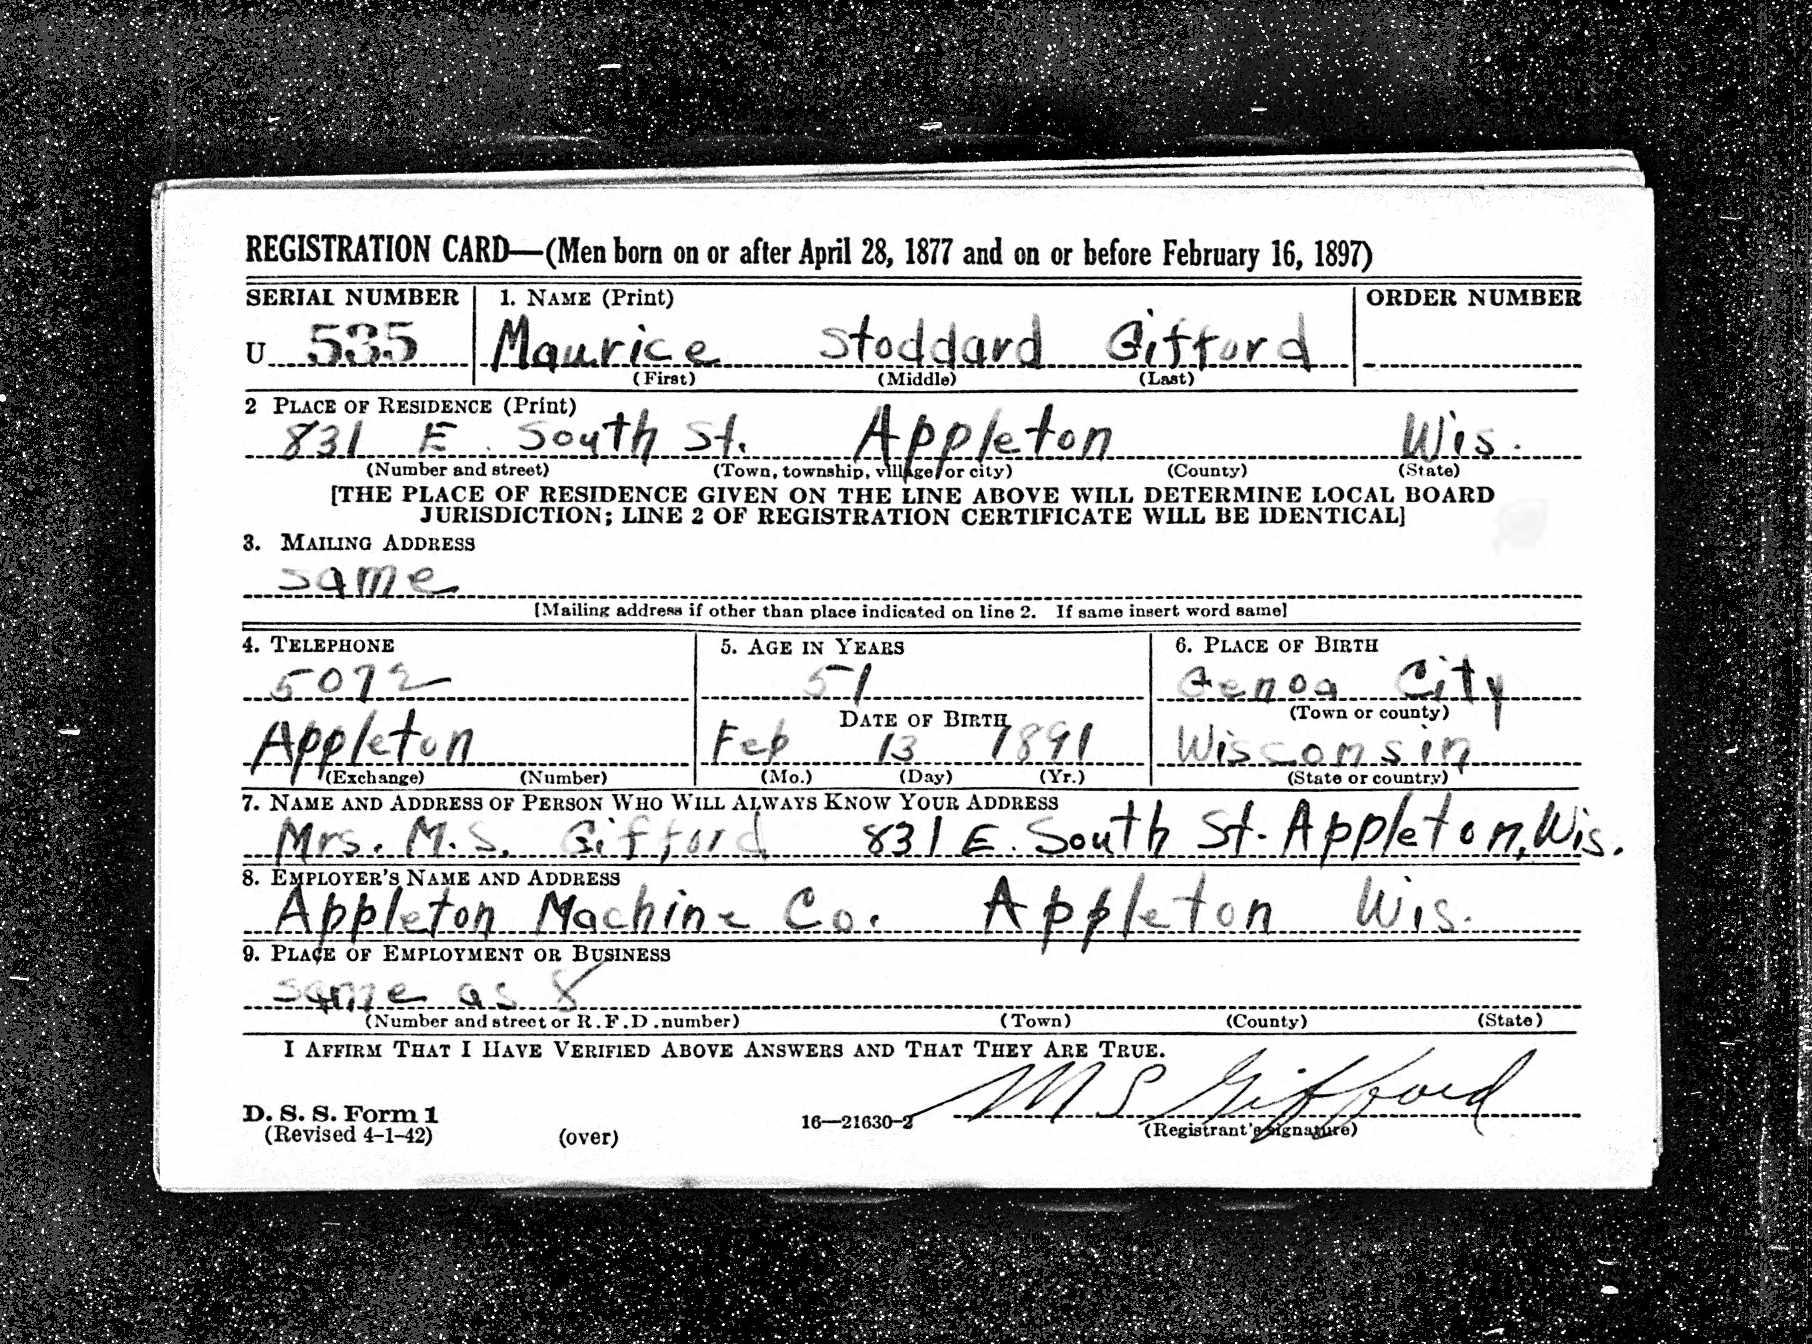 REGISTRATION CARD—(Men born on or after April 28, 1877 and on or before February 16, 1897)
SERIAL NUMBER 1. NAME (Print) ORDER NUMBER
U 535 Maurice Stoddard Gifford
(First) (Middle) (Last)
2 PLACE OF RESIDENCE (Print)
831 E. South St. Appleton Wis.
(Number and street) (Town, township, village, or city) (County) (State)
[THE PLACE OF RESIDENCE GIVEN ON THE LINE ABOVE WILL DETERMINE LOCAL BOARD
JURISDICTION; LINE 2 OF REGISTRATION CERTIFICATE WILL BE IDENTICAL]
3. MAILING ADDRESS
same
[Mailing address if other than place indicated on line 2. If same insert word same]
4. TELEPHONE 5. AGE IN YEARS 6. PLACE OF BIRTH
5072 51 Genoa City
DATE OF BIRTH (Town or county)
Appleton Feb 13 1891 Wisconsin
(Exchange) (Number) (Mo.) (Day) (Yr.) (State or country)
7. NAME AND ADDRESS OF PERSON WHO WILL ALWAYS KNOW YOUR ADDRESS
Mrs. M. S. Gifford 831 E. South St. Appleton, Wis.
8. EMPLOYER'S NAME AND ADDRESS
Appleton Machine Co. Appleton Wis.
9. PLACE OF EMPLOYMENT OR BUSINESS
same as 8
(Number and street or R.F.D. number) (Town) (County) (State)
I AFFIRM THAT I HAVE VERIFIED ABOVE ANSWERS AND THAT THEY ARE TRUE.
M S Gifford
D. S. S. Form 1
(Revised 4-1-42) (over) 16—21630-2 (Registrant's signature)